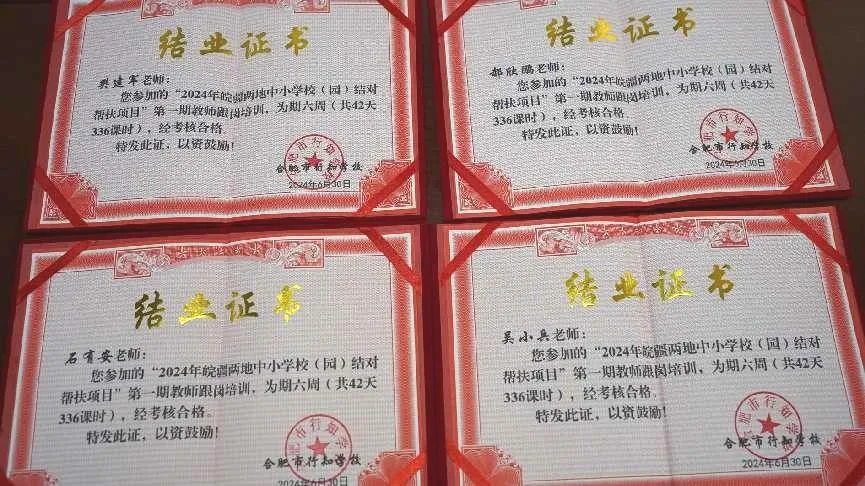 结业证书
樊建军老师：
您参加的“2024年皖疆两地中小学校（园）结对
帮扶项目”第一期教师跟岗培训，为期六周（共42天
336课时），经考核合格。
特发此证，以资鼓励！
合肥市行知学校
2024年6月30日
结业证书
郝欣鹏老师：
您参加的“2024年皖疆两地中小学校（园）结对
帮扶项目”第一期教师跟岗培训，为期六周（共42天
336课时），经考核合格。
特发此证，以资鼓励！
合肥市行知学校
2024年6月30日
结业证书
石有安老师：
您参加的“2024年皖疆两地中小学校（园）结对
帮扶项目”第一期教师跟岗培训，为期六周（共42天
336课时），经考核合格。
特发此证，以资鼓励！
合肥市行知学校
2024年6月30日
结业证书
吴小兵老师：
您参加的“2024年皖疆两地中小学校（园）结对
帮扶项目”第一期教师跟岗培训，为期六周（共42天
336课时），经考核合格。
特发此证，以资鼓励！
合肥市行知学校
2024年6月30日